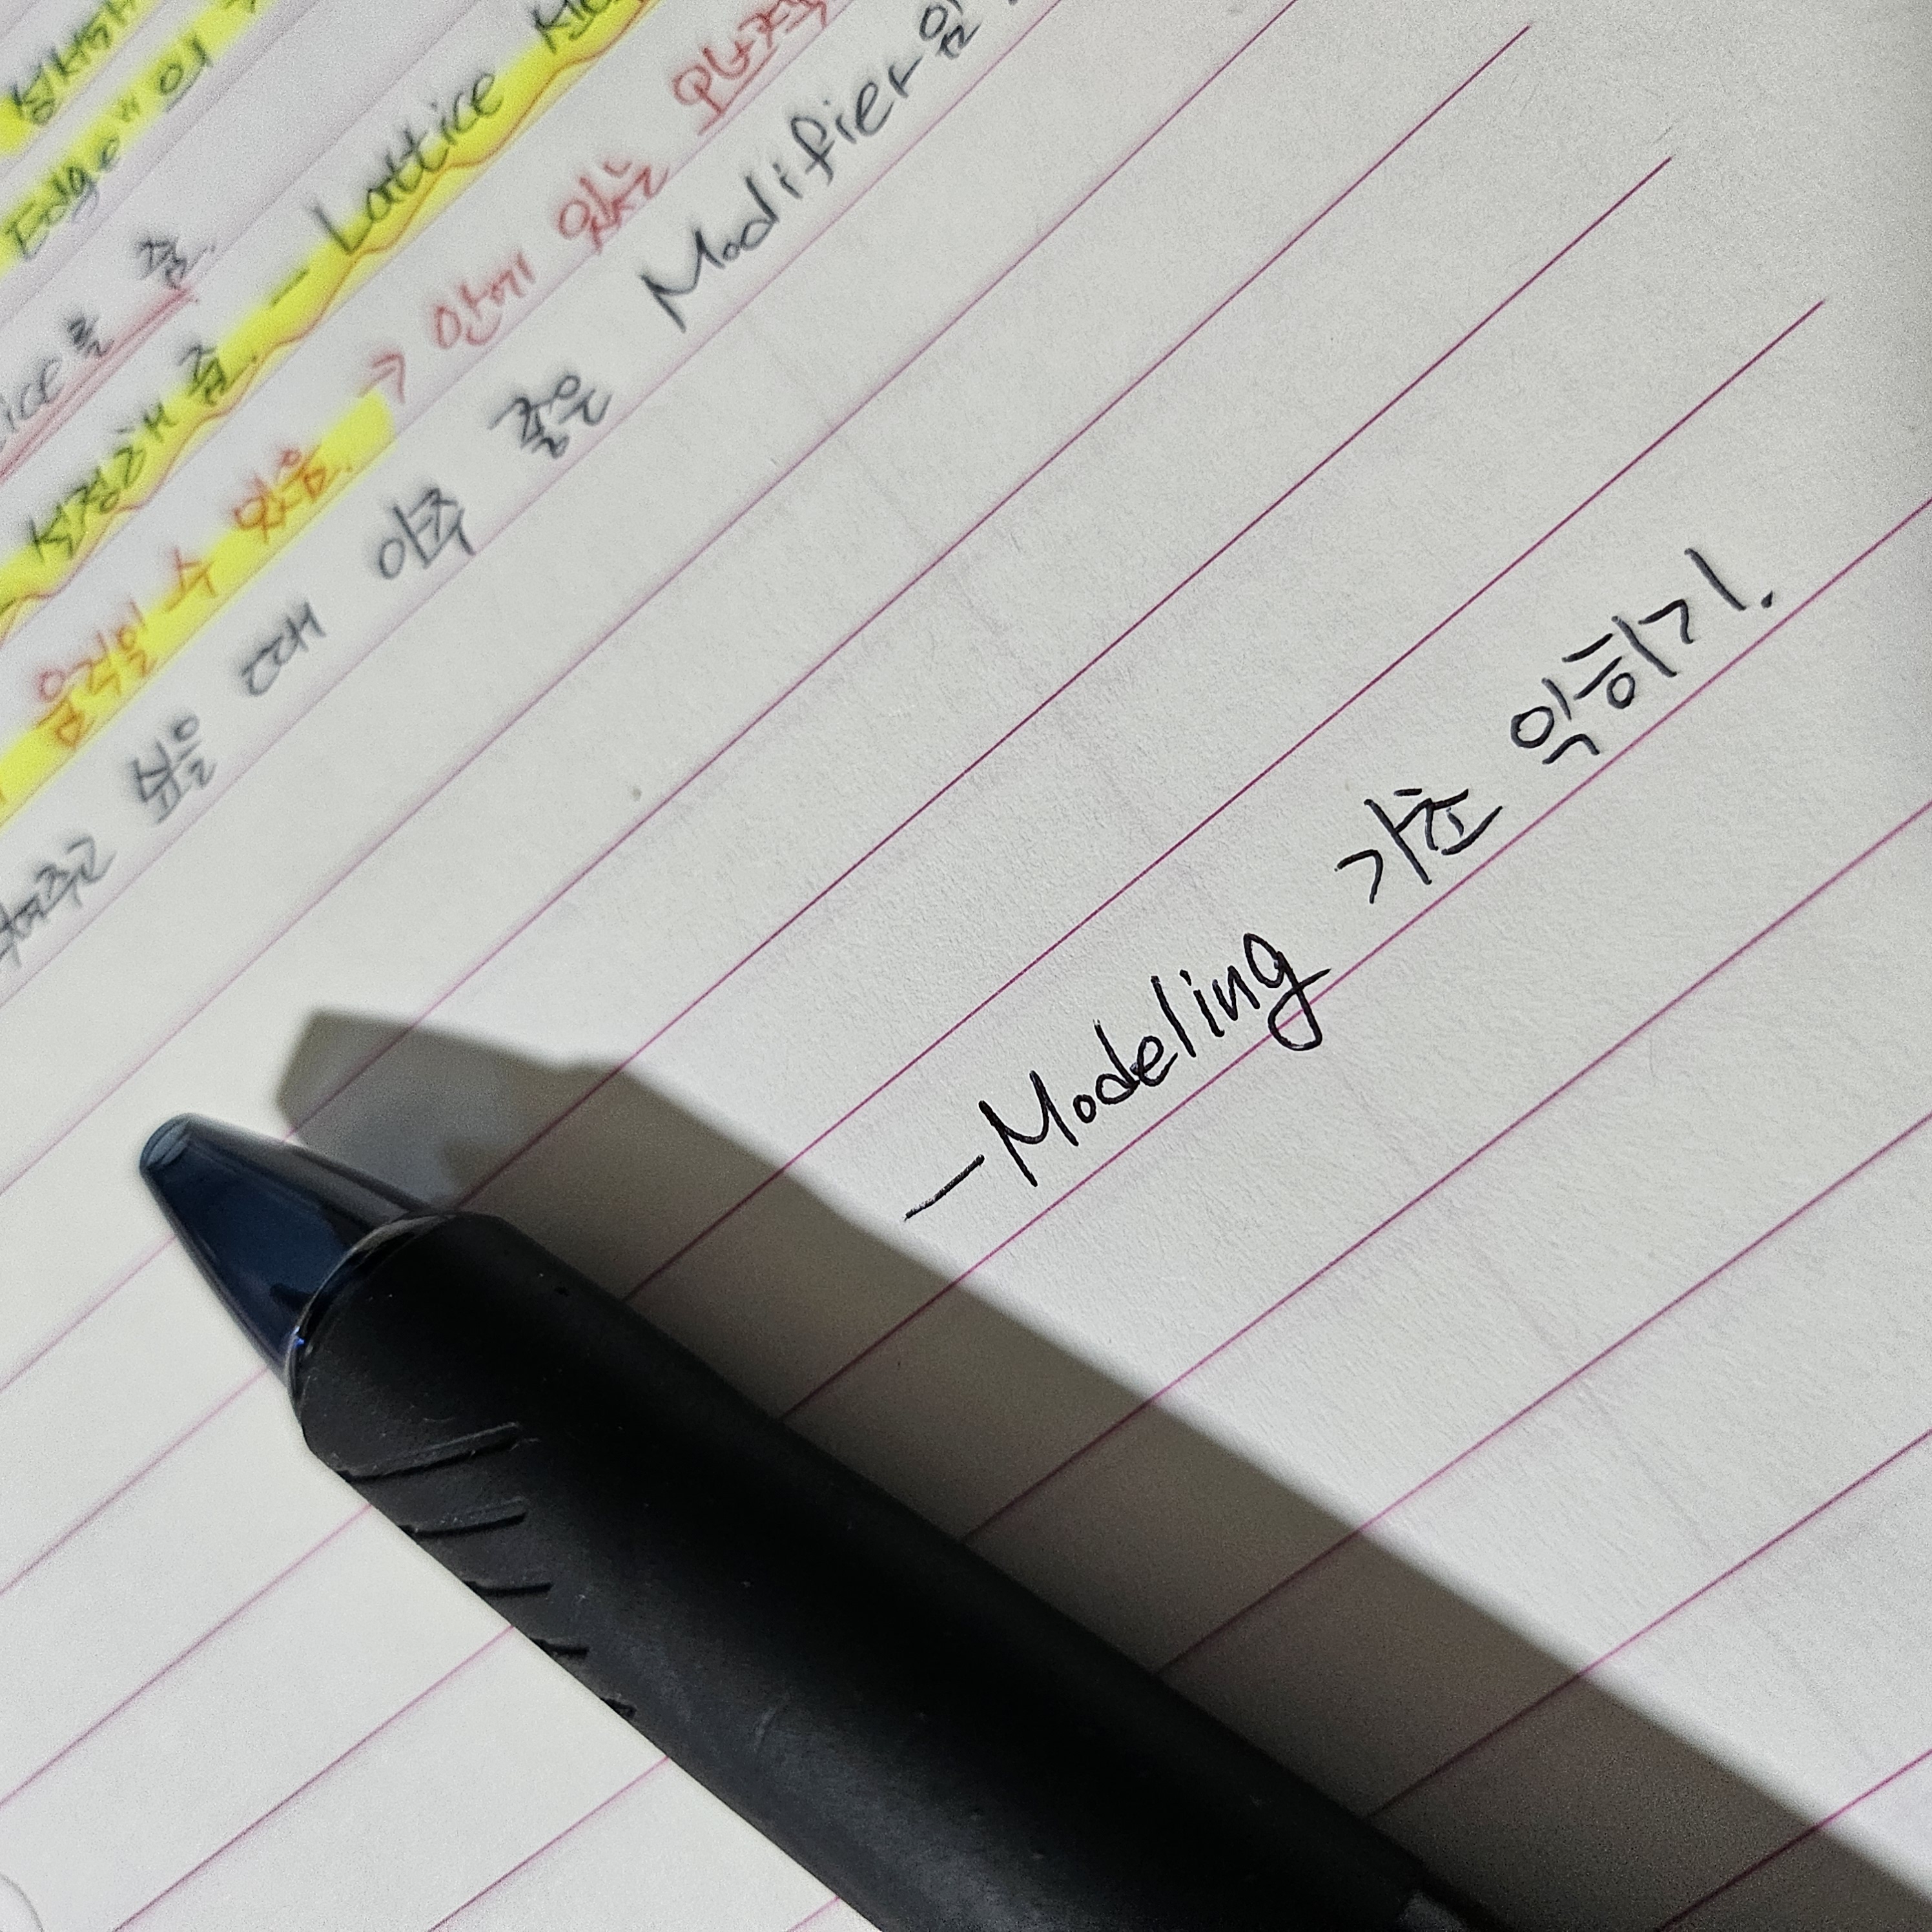 Edge"의
줌.
설정해 줌. - Lattice
움직일 수 있음. → 안에 있는 오브젝
싶을 때 아주 좋은 Modifier임
-Modeling 기초 익히기.